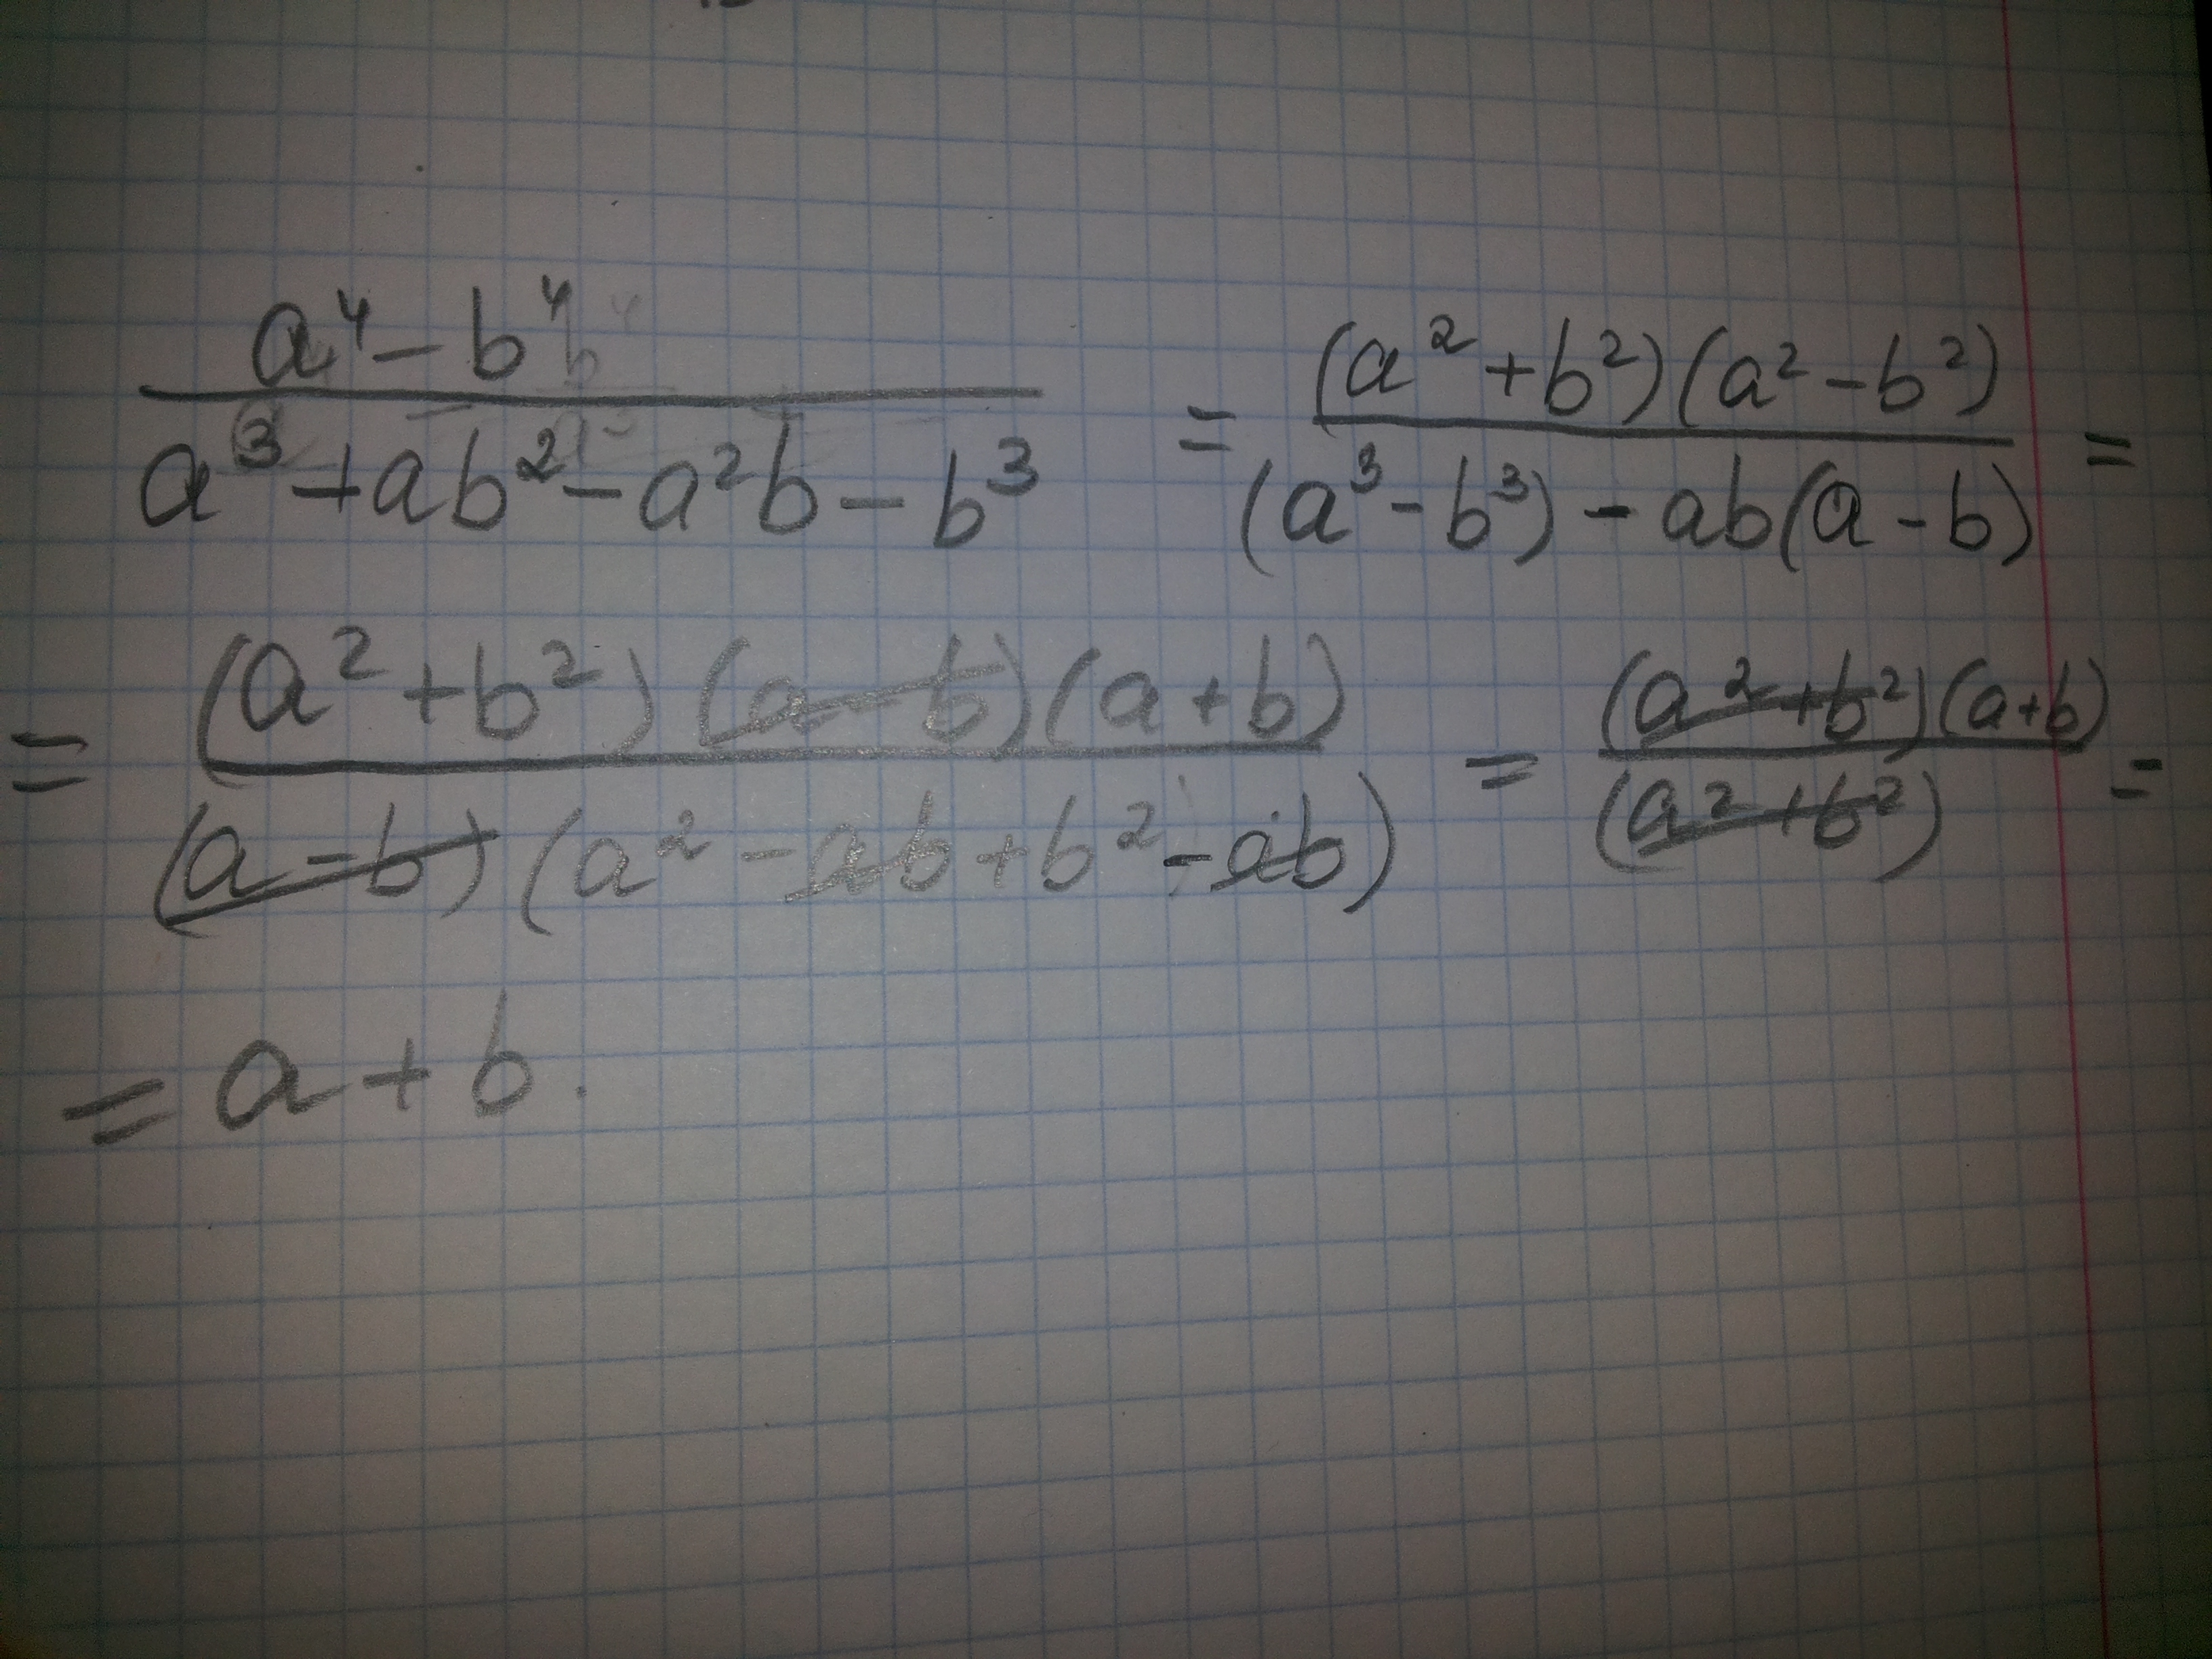 a⁴ - b⁴ / a³ + ab² - a²b - b³ = (a² + b²)(a² - b²) / (a³ - b³) - ab(a - b) =
= (a² + b²)(a - b)(a + b) / (a - b)(a² - ab + b² - ab) = (a² + b²)(a + b) / (a² + b²) =
= a + b.